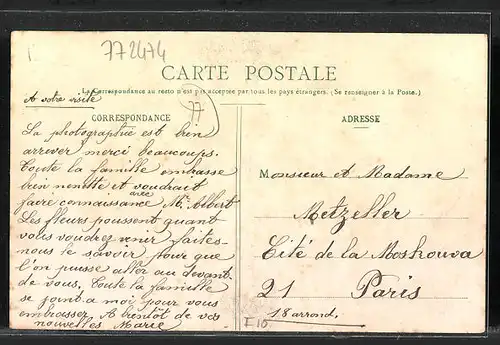 772474
CARTE POSTALE
La Correspondance au recto n'est pas acceptée par tous les pays étrangers. (Se renseigner à la Poste.)
A votre visite
77
CORRESPONDANCE
ADRESSE
La photographie est bien
arriver merci beaucoups.
Toute la famille embrasse
bien et voudrait
faire connaissance avec Mr Albert
Les fleurs poussent quant
vous voudrez venir faites-
nous le savoir pour que
l'on puisse aller au devant
de vous. Toute la famille
se joint a moi pour vous
embrasser. A bientôt de vos
nouvelles Marie
Monsieur et Madame
Metzeller
Cité de la Moskouva
21 Paris
18 arrond.
F10